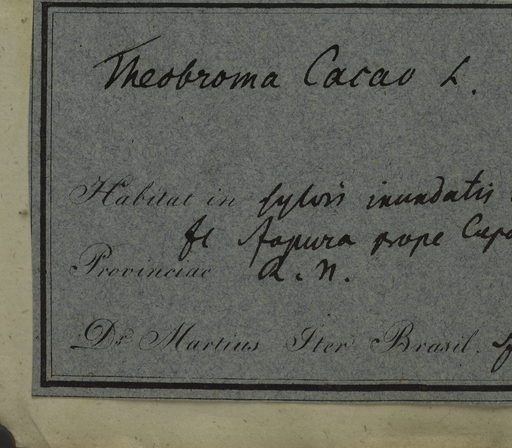 Theobroma Cacao L.
Habitat in sylvis inundatis
fl Japura prope Cupa
Provinciae a. n.
Dr. Martius Iter Brasil.